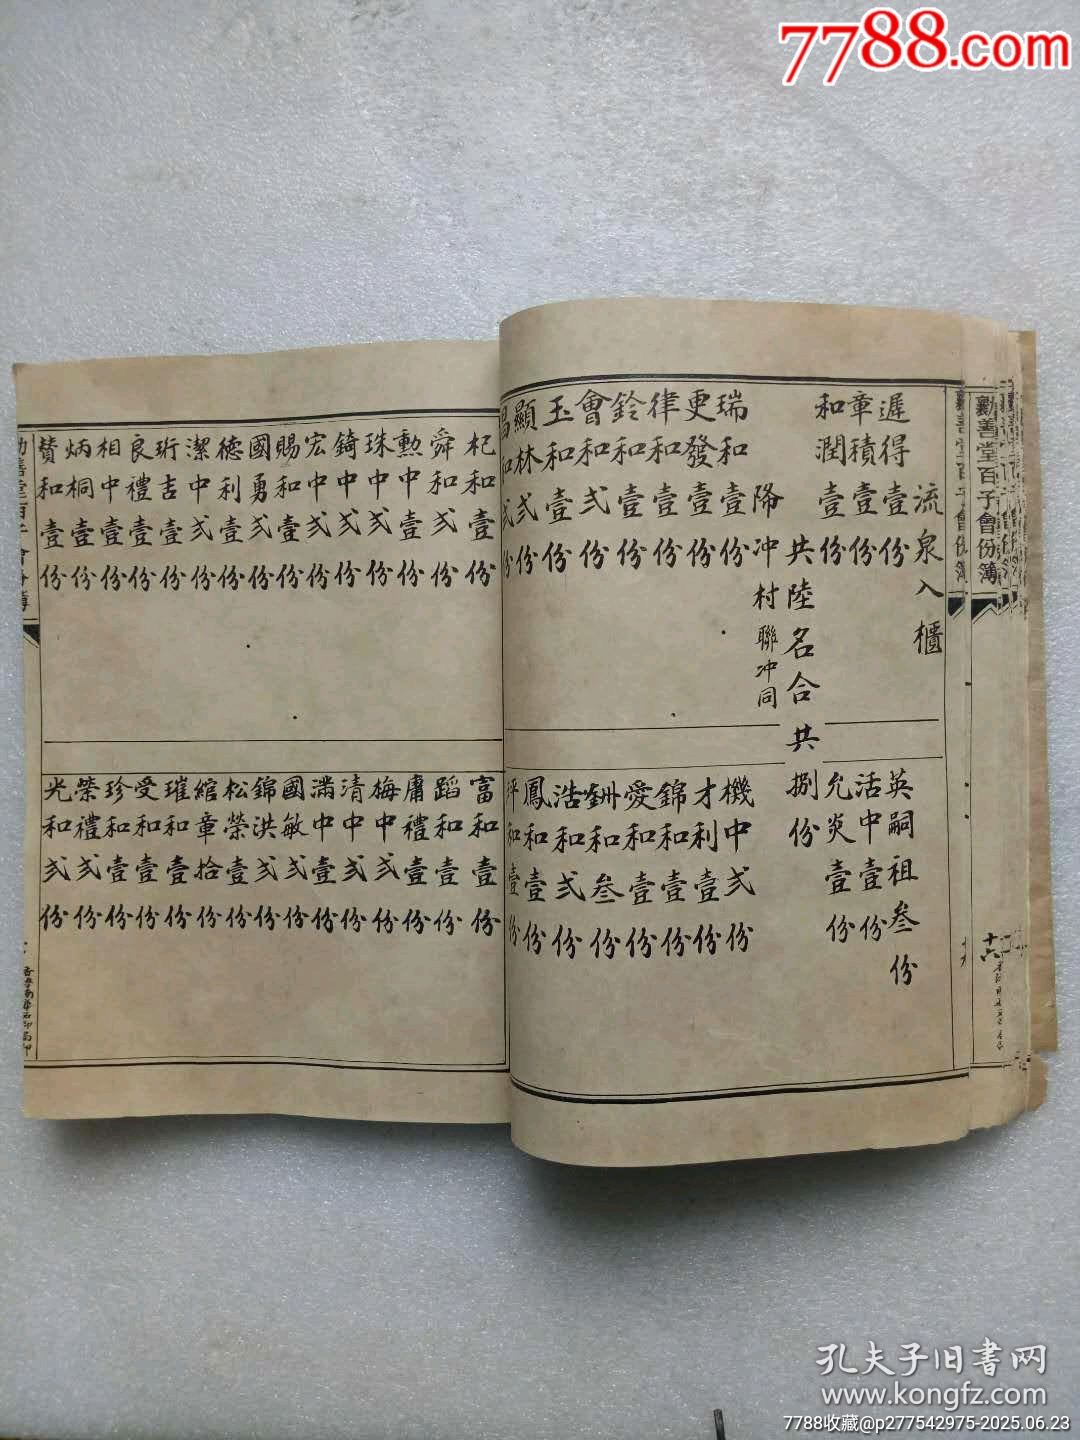 7788.com
勸善堂百子會份簿
十六
流泉入櫃
遲得壹份
章積壹份
和潤壹份
英嗣祖叁份
活中壹份
允炎壹份
共陸名合共捌份
降冲村聯冲同
瑞和壹份
更發壹份
律和壹份
鈴和壹份
會和弍份
玉和壹份
顯林弍份
昌和弍份
機中弍份
才利壹份
錦和壹份
愛和壹份
鉶和叁份
浩和弍份
鳳和壹份
坪和壹份
杞和壹份
舜和弍份
勲中壹份
珠中弍份
錡中弍份
宏中弍份
賜和壹份
國勇弍份
德利壹份
潔中弍份
珩吉壹份
良禮壹份
相中壹份
炳桐壹份
贊和壹份
富和壹份
蹈和壹份
庸禮壹份
梅中弍份
清中弍份
滿中壹份
國敏弍份
錦洪弍份
松榮壹份
綰章拾份
璀和壹份
受和壹份
珍和壹份
榮禮弍份
光和弍份
勸善堂百子會份簿
孔夫子旧书网
www.kongfz.com
7788收藏@p277542975-2025.06.23